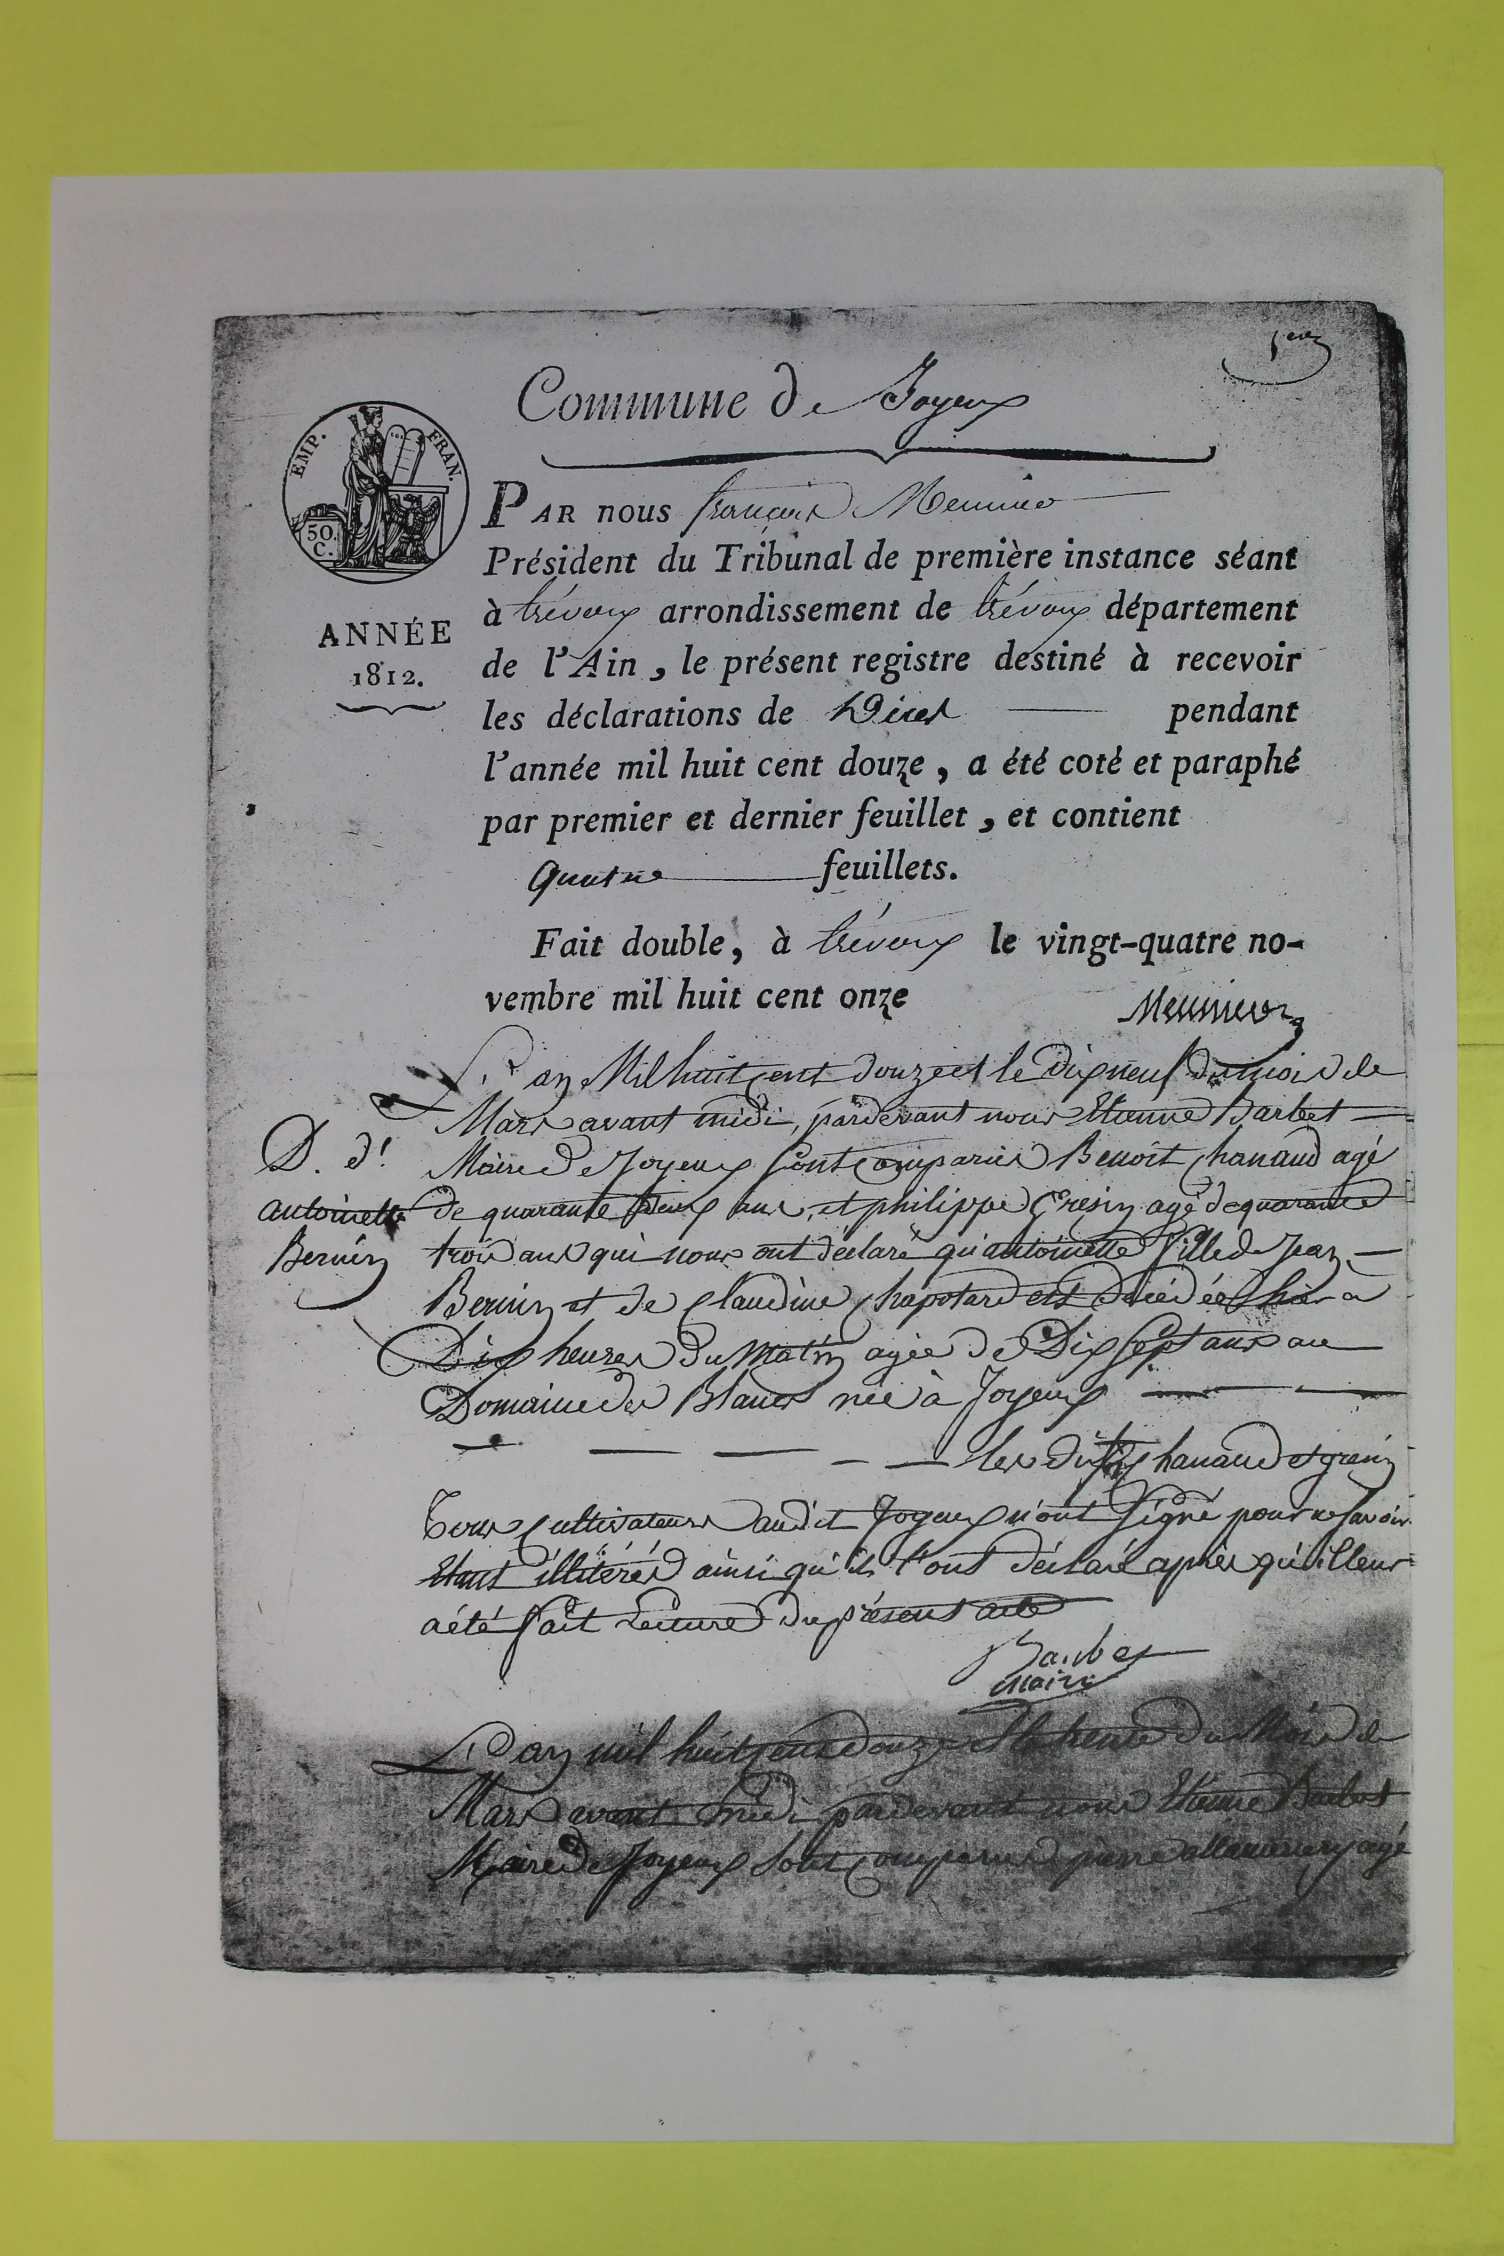 1er
Commune de Joyeux
EMP. FRAN.
50. C.
ANNÉE
1812.
PAR nous françois Meunier
Président du Tribunal de première instance séant
à trévoux arrondissement de trévoux département
de l'Ain, le présent registre destiné à recevoir
les déclarations de Décès pendant
l'année mil huit cent douze, a été coté et paraphé
par premier et dernier feuillet, et contient
Quatre feuillets.
Fait double, à trévoux le vingt-quatre no-
vembre mil huit cent onze
Meunier
D. d'
antoinette
Bernin
L'an Mil huit cent douze et le dix neuf du mois de
Mars avant midi, pardevant nous Etienne Barbet
Maire de Joyeux sont comparus Benoit chanaud agé
de quarante deux ans, et philippe Gresin agé de quarante
trois ans qui nous ont declaré qu'antoinette fille de Jean
Bernin et de Claudine chapotard est décédée hier a
Dix heures du matin agée de Dix sept ans au
Domaine des Blancs née à Joyeux
les dits chanaud et gresin
Tous cultivateurs audit Joyeux n'ont signé pour ne savoir
Etant illitérés ainsi qu'ils l'ont déclaré après qu'il leur
a été fait Lecture du présent acte
Barbet
maire
L'an mil huit cent douze et le trente du Mois de
Mars avant midi pardevant nous Etienne Barbet
Maire de Joyeux sont comparus pierre agé